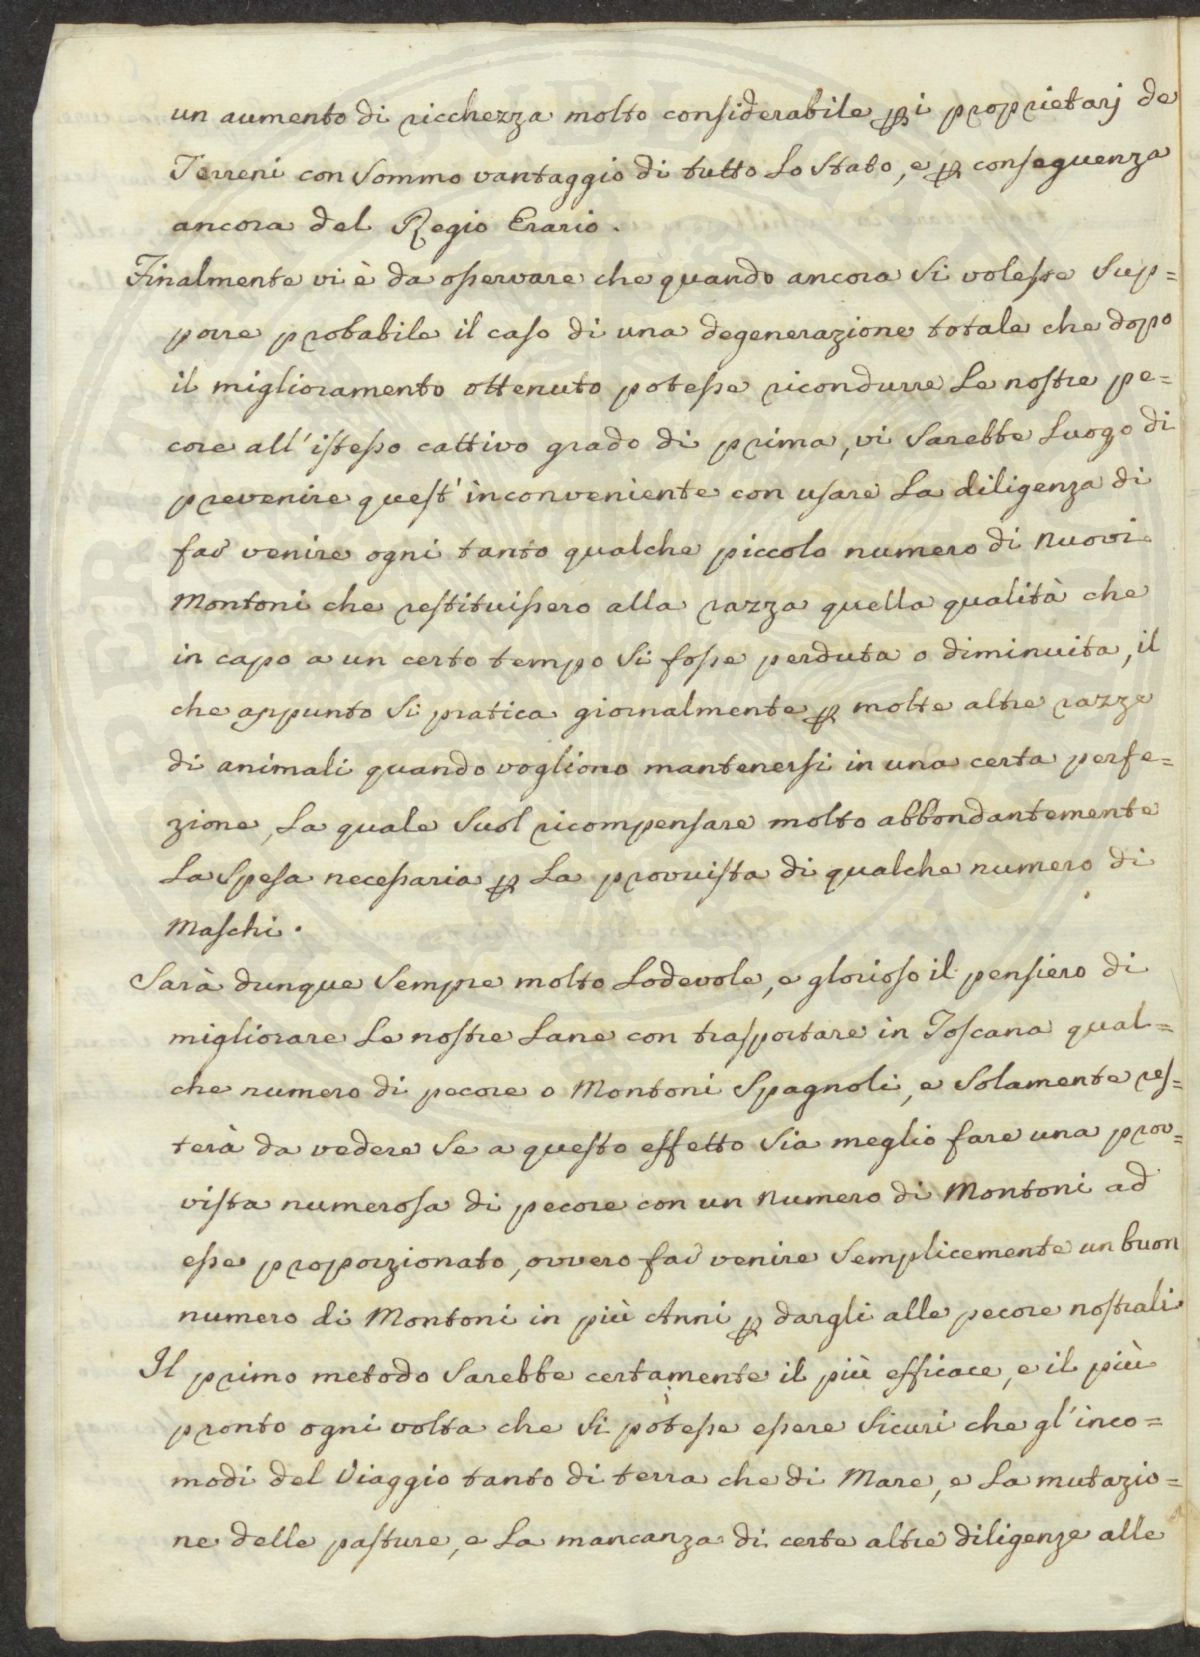 un aumento di ricchezza molto considerabile ꝑ i proprietarj de
Terreni con Sommo vantaggio di tutto Lo Stato, e ꝑ conseguenza
ancora del Regio Erario.
Finalmente vi è da oſservare che quando ancora Si voleſse Sup=
porre probabile il caſo di una degenerazione totale che dopo
il miglioramento ottenuto poteſse ricondurre Le noſtre pe=
core all'iſteſso cattivo grado di prima, vi Sarebbe Luogo di
prevenire queſt'inconveniente con uſare La diligenza di
far venire ogni tanto qualche piccolo numero di Nuovi
Montoni che reſtituiſsero alla razza quella qualità che
in capo a un certo tempo Si foſse perduta o diminuita, il
che appunto Si pratica giornalmente ꝑ molte altre razze
di animali quando vogliono mantenerſi in una certa perfe=
zione, La quale Suol ricompenſare molto abbondantemente
La Speſa neceſsaria ꝑ La provviſta di qualche numero di
Maſchi.
Sarà dunque Sempre molto Lodevole, e glorioſo il penſiero di
migliorare Le noſtre Lane con traſportare in Toſcana qual=
che numero di pecore o Montoni Spagnoli, e Solamente reſ=
terà da vedere Se a queſto effetto Sia meglio fare una prov=
viſta numeroſa di pecore con un Numero di Montoni ad
eſse proporzionato, ovvero far venire Semplicemente un buon
numero di Montoni in più Anni ꝑ dargli alle pecore noſtrali
Il primo metodo Sarebbe certamente il più efficace, e il più
pronto ogni volta che Si poteſse eſsere Sicuri che gl'inco=
modi del Viaggio tanto di terra che di Mare, e La mutazio=
ne delle paſture, e La mancanza di certe altre diligenze alle